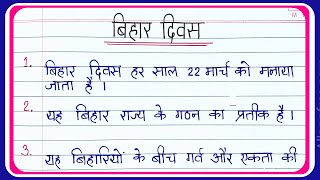 बिहार दिवस
1. बिहार दिवस हर साल 22 मार्च को मनाया
जाता है ।
2. यह बिहार राज्य के गठन का प्रतीक है ।
3. यह बिहारियों के बीच गर्व और एकता की